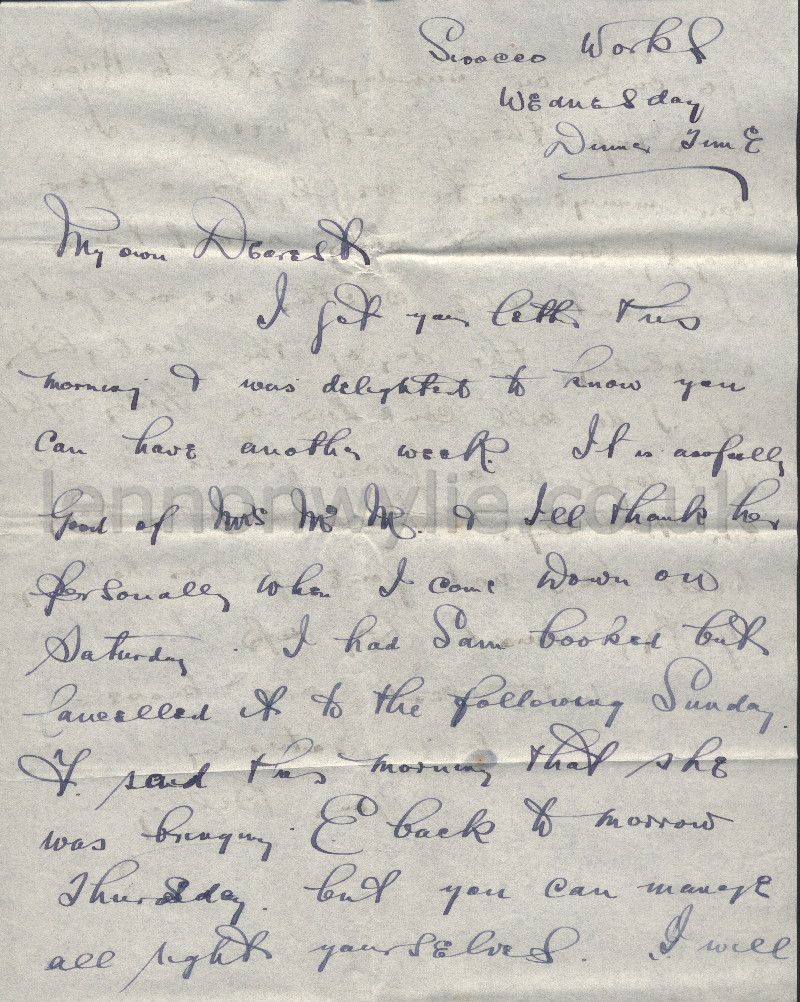 Sirocco Works
Wednesday
Dinner Time
My own Dearest
I got your letter this
morning & was delighted to know you
can have another week. It is awfully
Good of Mrs Mc M. & I'll thank her
personally when I come down on
Saturday. I had Sam booked but
cancelled it to the following Sunday
F. said this morning that she
was bringing E back to morrow
Thursday. but you can manage
all right yourselves. I will
lennonwylie.co.uk